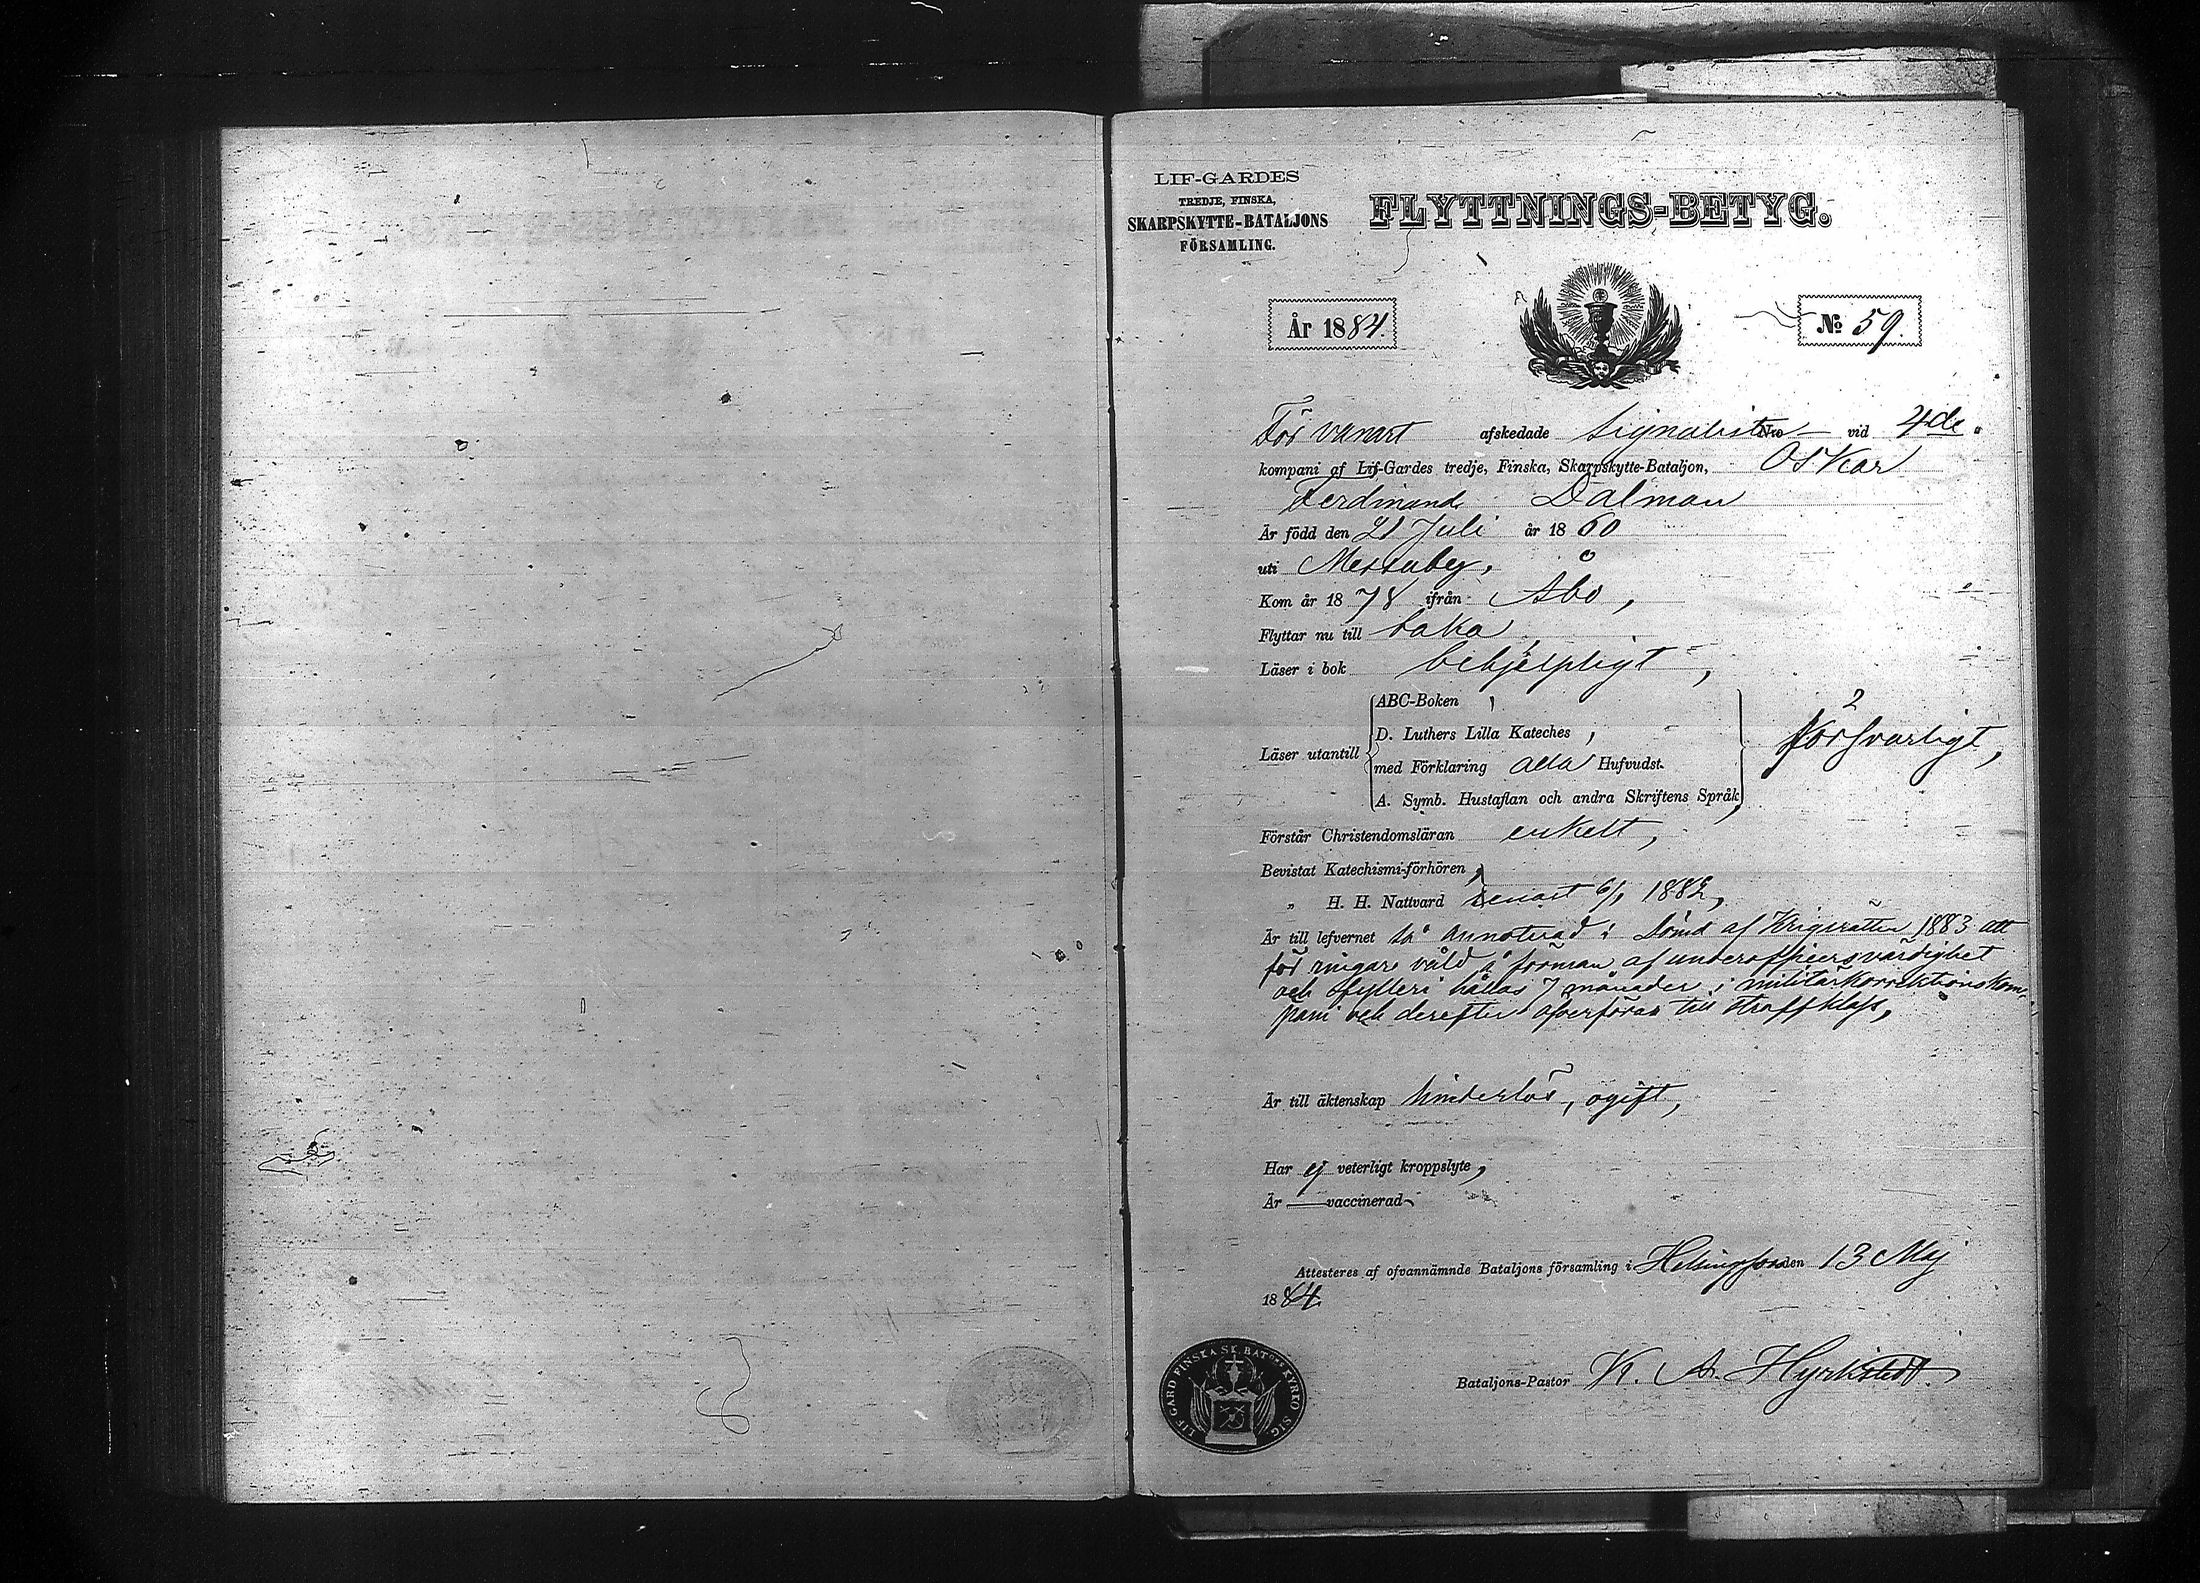 LIF-GARDES
TREDJE, FINSKA,
SKARPSKYTTE-BATALJONS
FÖRSAMLING.
FLYTTNINGS-BETYG.
År 1884.
№ 59.
För vanart afskedade Signalisten Nro vid 4de
kompani af Lif-Gardes tredje, Finska, Skarpskytte-Bataljon, Oskar
Ferdinand Dalman
Är född den 21 Juli år 1860
uti Messuby,
Kom år 1878 ifrån Åbo,
Flyttar nu till baka,
Läser i bok behjelpligt,
Läser utantill
ABC-Boken,
D. Luthers Lilla Kateches,
med Förklaring alla Hufvudst.
A. Symb. Hustaflan och andra Skriftens Språk
försvarligt,
Förstår Christendomsläran enkelt,
Bevistat Katechismi-förhören,
„ H. H. Nattvard senast 6/1 1882,
Är till lefvernet så annoterad: Dömd af Krigsrätten 1883 att
för ringare våld å förman af underofficersvärdighet
och fylleri hållas 7 månader i militärkorrektionskom-
pani och derefter öfverföras till straffklass,
Är till äktenskap hinderlös, ogift,
Har ej veterligt kroppslyte,
Är — vaccinerad
Attesteres af ofvannämnde Bataljons församling i Helsingfors den 13 Maj
1884.
Bataljons-Pastor K. A. Hyrkstedt.
LIF GARD FINSKA SK. BATONS KYRKO SIG.